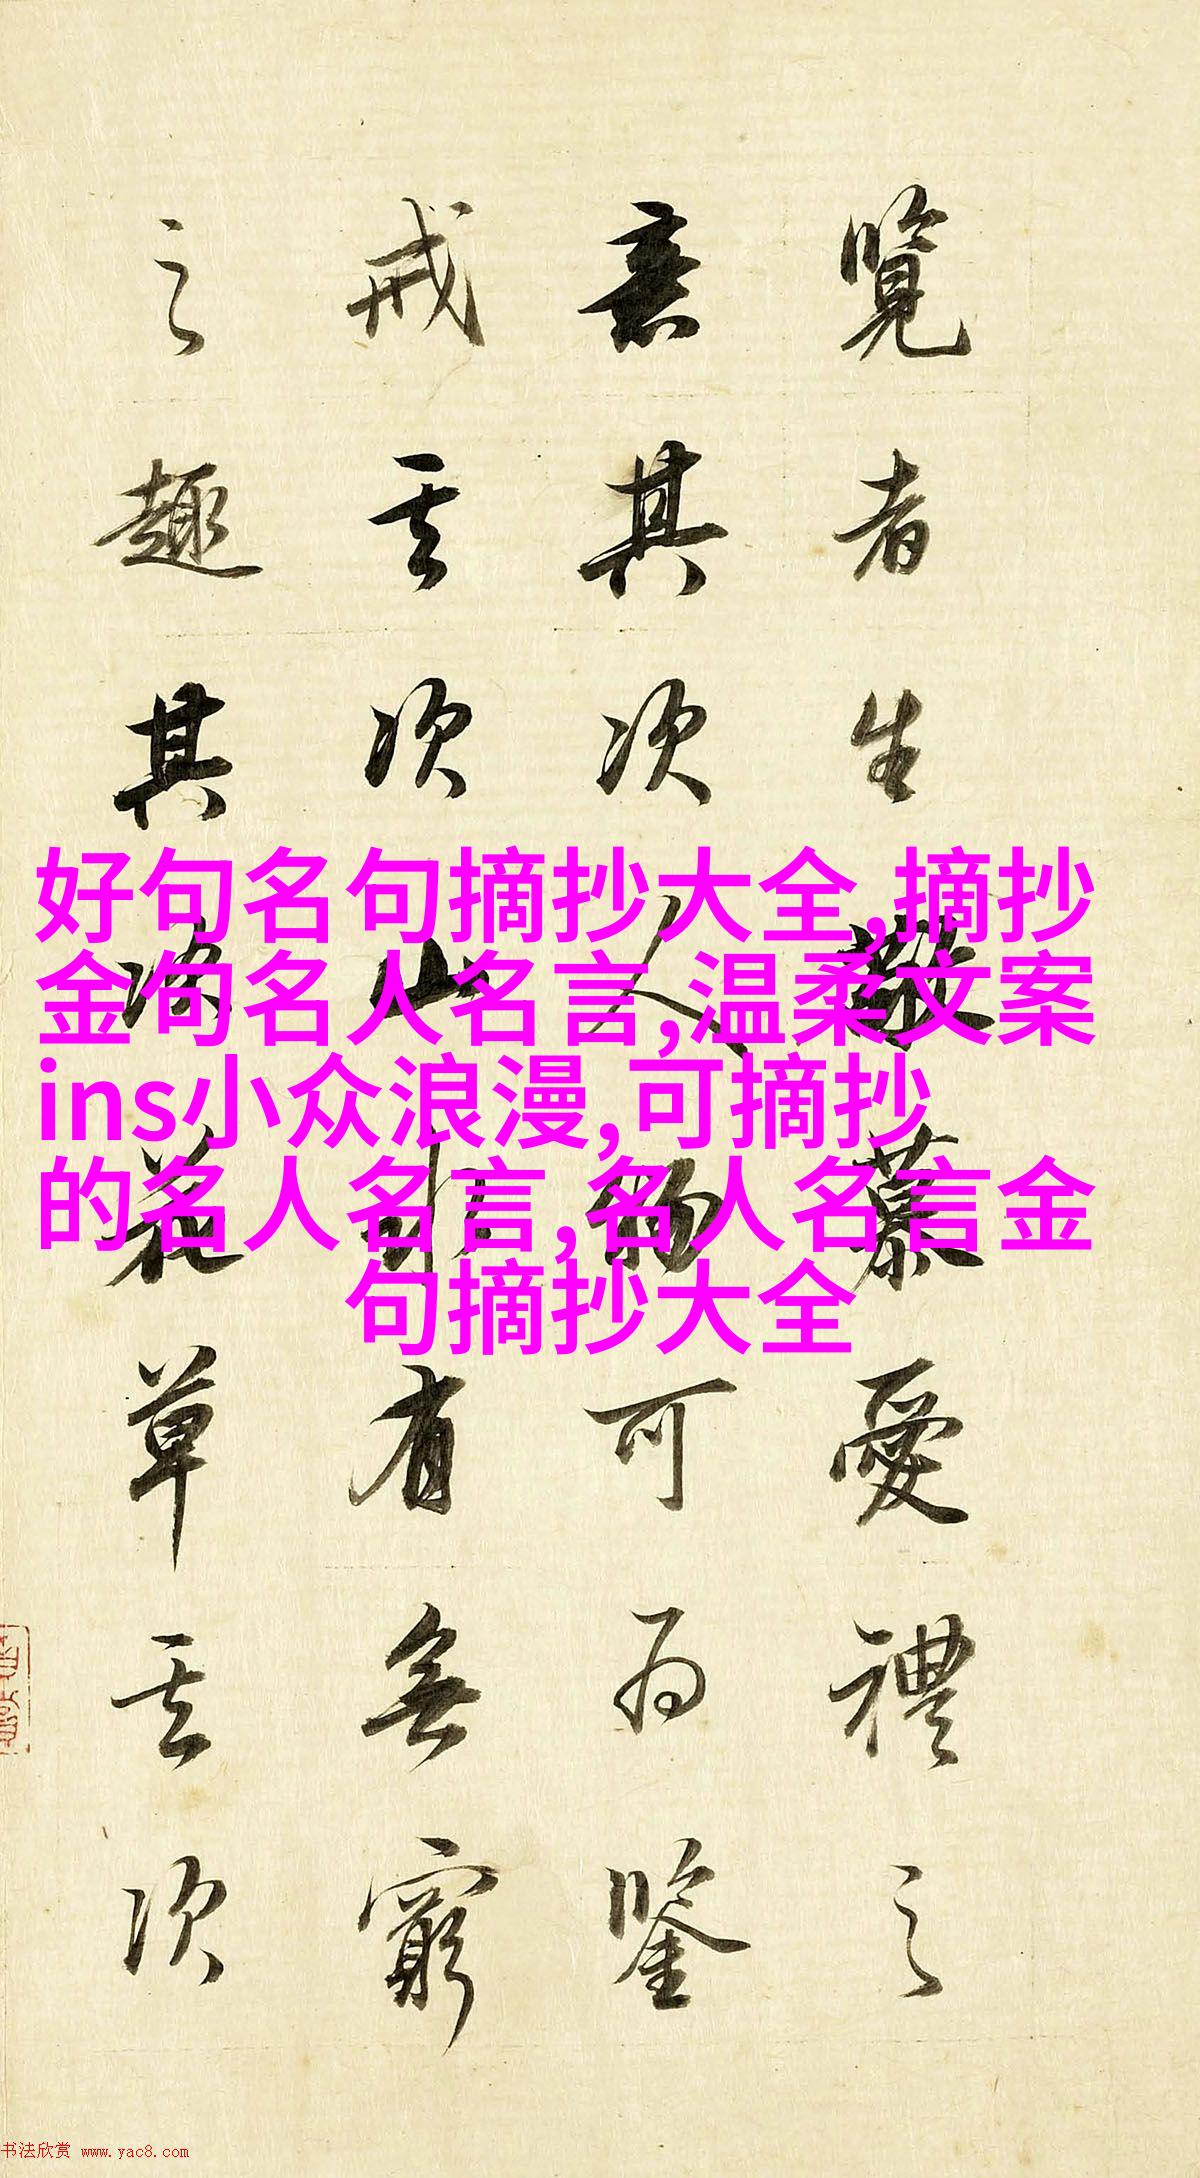 覽者生敬慕愛禮之
意其次人物可為鑒
戒其次山水有無窮
之趣其次花草其次
好句名句摘抄大全,摘抄
金句名人名言,温柔文案
ins小众浪漫,可摘抄
的名人名言,名人名言金
句摘抄大全
书法欣赏 www.yac8.com